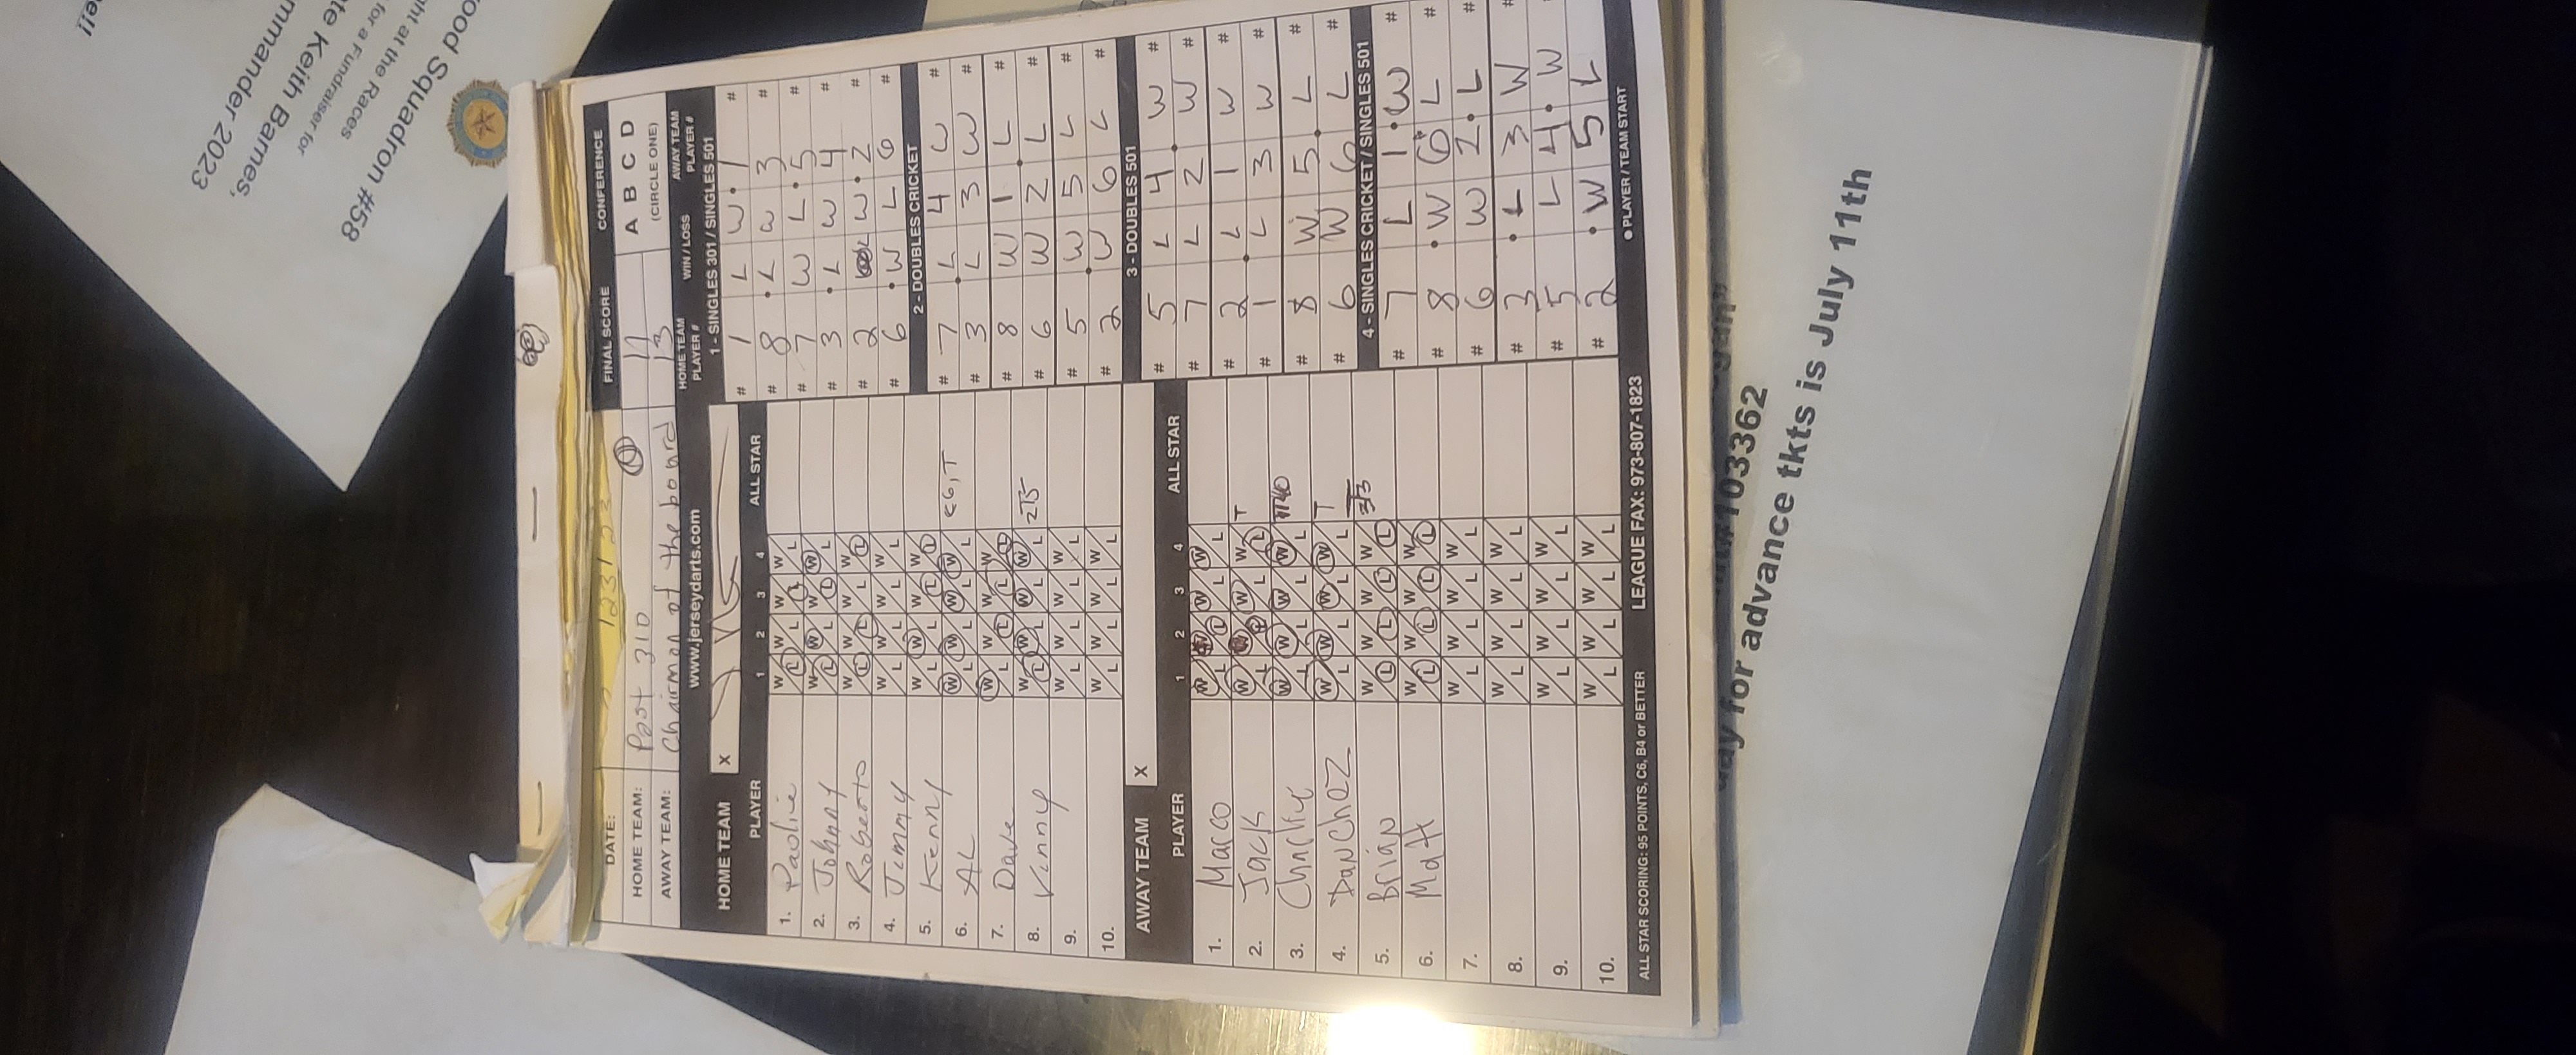 DATE:
HOME TEAM: Post 310
AWAY TEAM: Chairman of the board
FINAL SCORE
11
13
CONFERENCE
A B C D
(CIRCLE ONE)
www.jerseydarts.com
HOME TEAM PLAYER #
WIN / LOSS
AWAY TEAM PLAYER #
HOME TEAM X
PLAYER 1 2 3 4 ALL STAR
1. Paulie W L W L W L W L
2. Johnny W L W L W L W L
3. Roberto W L W L W L W L
4. Jimmy W L W L W L W L
5. Kenny W L W L W L W L
6. AL W L W L W L W L C6, T
7. Dave W L W L W L W L
8. Vinny W L W L W L W L
9. W L W L W L W L
10. W L W L W L W L
AWAY TEAM X
PLAYER 1 2 3 4 ALL STAR
1. Marco W L W L W L W L
2. Jack W L W L W L W L T
3. Charley W L W L W L W L
4. DanChez W L W L W L W L T
5. Brian W L W L W L W L
6. Matt W L W L W L W L
7. W L W L W L W L
8. W L W L W L W L
9. W L W L W L W L
10. W L W L W L W L
1 - SINGLES 301 / SINGLES 501
# 1 L W 1 #
# 8 L W 3 #
# 7 W L 5 #
# 3 L W 4 #
# 2 L W 2 #
# 6 W L 6 #
2 - DOUBLES CRICKET
# 7 L 4 W #
# 3 L 3 W #
# 8 W 1 L #
# 6 W 2 L #
# 5 W 5 L #
# 2 W 6 L #
3 - DOUBLES 501
# 5 L 4 W #
# 7 L 2 W #
# 2 L 1 W #
# 1 L 3 W #
# 8 W 5 L #
# 6 W 6 L #
4 - SINGLES CRICKET / SINGLES 501
# 7 L 1 W #
# 8 W 6 L #
# 6 W 2 L #
# 3 L 3 W #
# 5 L 4 W
# 2 W 5 L
ALL STAR SCORING: 95 POINTS, C6, B4 or BETTER
LEAGUE FAX: 973-807-1823
● PLAYER / TEAM START
Squadron #58
ht at the Races
for a Fundraiser for
te Keith Barnes,
mmander 2023
103362
for advance tkts is July 11th